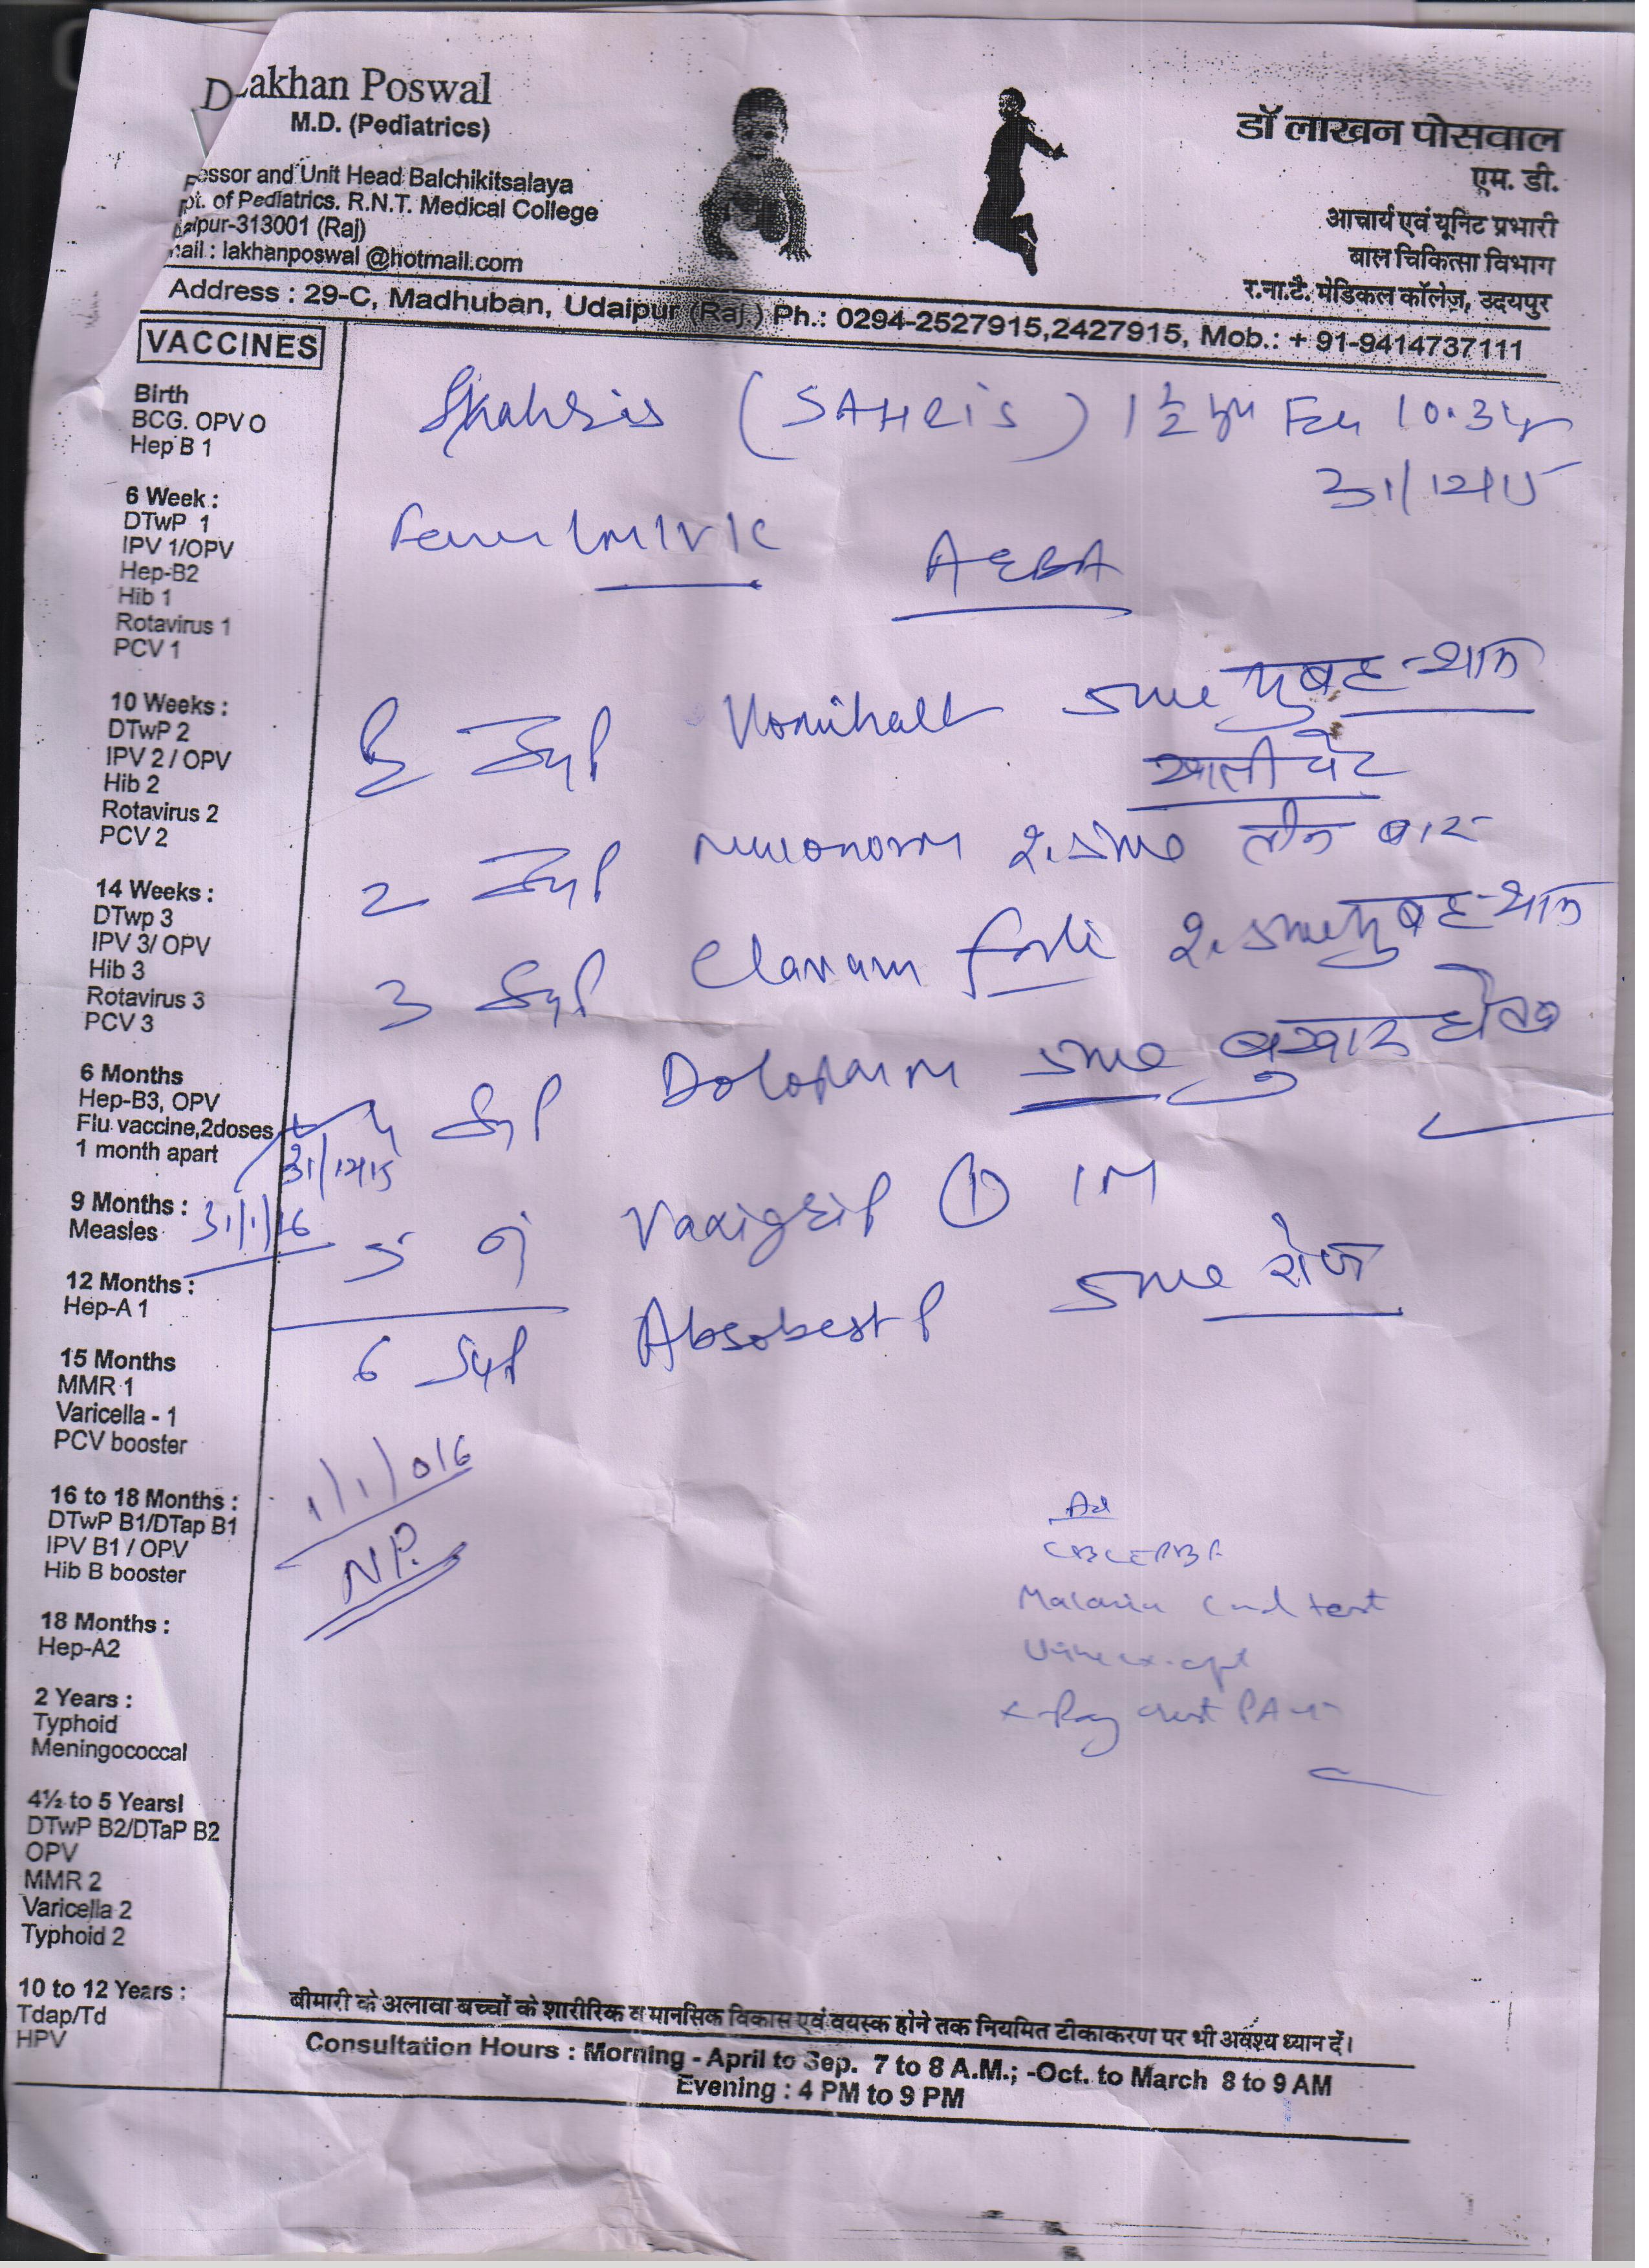 akhan Poswal
M.D. (Pediatrics)
essor and Unit Head Balchikitsalaya
pt. of Pediatrics. R.N.T. Medical College
aipur-313001 (Raj)
ail : lakhanposwal @hotmail.com
डॉ लाखन पोसवाल
एम. डी.
आचार्य एवं यूनिट प्रभारी
बाल चिकित्सा विभाग
र.ना.टै. मेडिकल कॉलेज, उदयपुर
Address : 29-C, Madhuban, Udaipur (Raj.) Ph.: 0294-2527915,2427915, Mob.: + 91-9414737111
VACCINES
Birth
BCG. OPV O
Hep B 1
6 Week :
DTwP 1
IPV 1/OPV
Hep-B2
Hib 1
Rotavirus 1
PCV 1
10 Weeks :
DTwP 2
IPV 2 / OPV
Hib 2
Rotavirus 2
PCV 2
14 Weeks :
DTwp 3
IPV 3/ OPV
Hib 3
Rotavirus 3
PCV 3
6 Months
Hep-B3, OPV
Flu vaccine,2doses
1 month apart
31/12/15
9 Months :
Measles
31/1/16
12 Months :
Hep-A 1
15 Months
MMR 1
Varicella - 1
PCV booster
16 to 18 Months :
DTwP B1/DTap B1
IPV B1 / OPV
Hib B booster
18 Months :
Hep-A2
2 Years :
Typhoid
Meningococcal
4½ to 5 Yearsl
DTwP B2/DTaP B2
OPV
MMR 2
Varicella 2
Typhoid 2
10 to 12 Years :
Tdap/Td
HPV
(SAHRIS) 1 ½
31/12/15
Syp 5ml सुबह-शाम
खाली पेट
2 Syp तीन बार
3 Syp Clavam forte सुबह-शाम
Syp Dolopar 5ml बुखार हो तब
5 Vaxigrip ① IM
6 Syp Absobest 5ml रोज
1/1/016
N.P.
Ad
Malaria Card test
X-Ray chest PA
बीमारी के अलावा बच्चों के शारीरिक व मानसिक विकास एवं वयस्क होने तक नियमित टीकाकरण पर भी अवश्य ध्यान दें।
Consultation Hours : Morning - April to Sep. 7 to 8 A.M.; -Oct. to March 8 to 9 AM
Evening : 4 PM to 9 PM